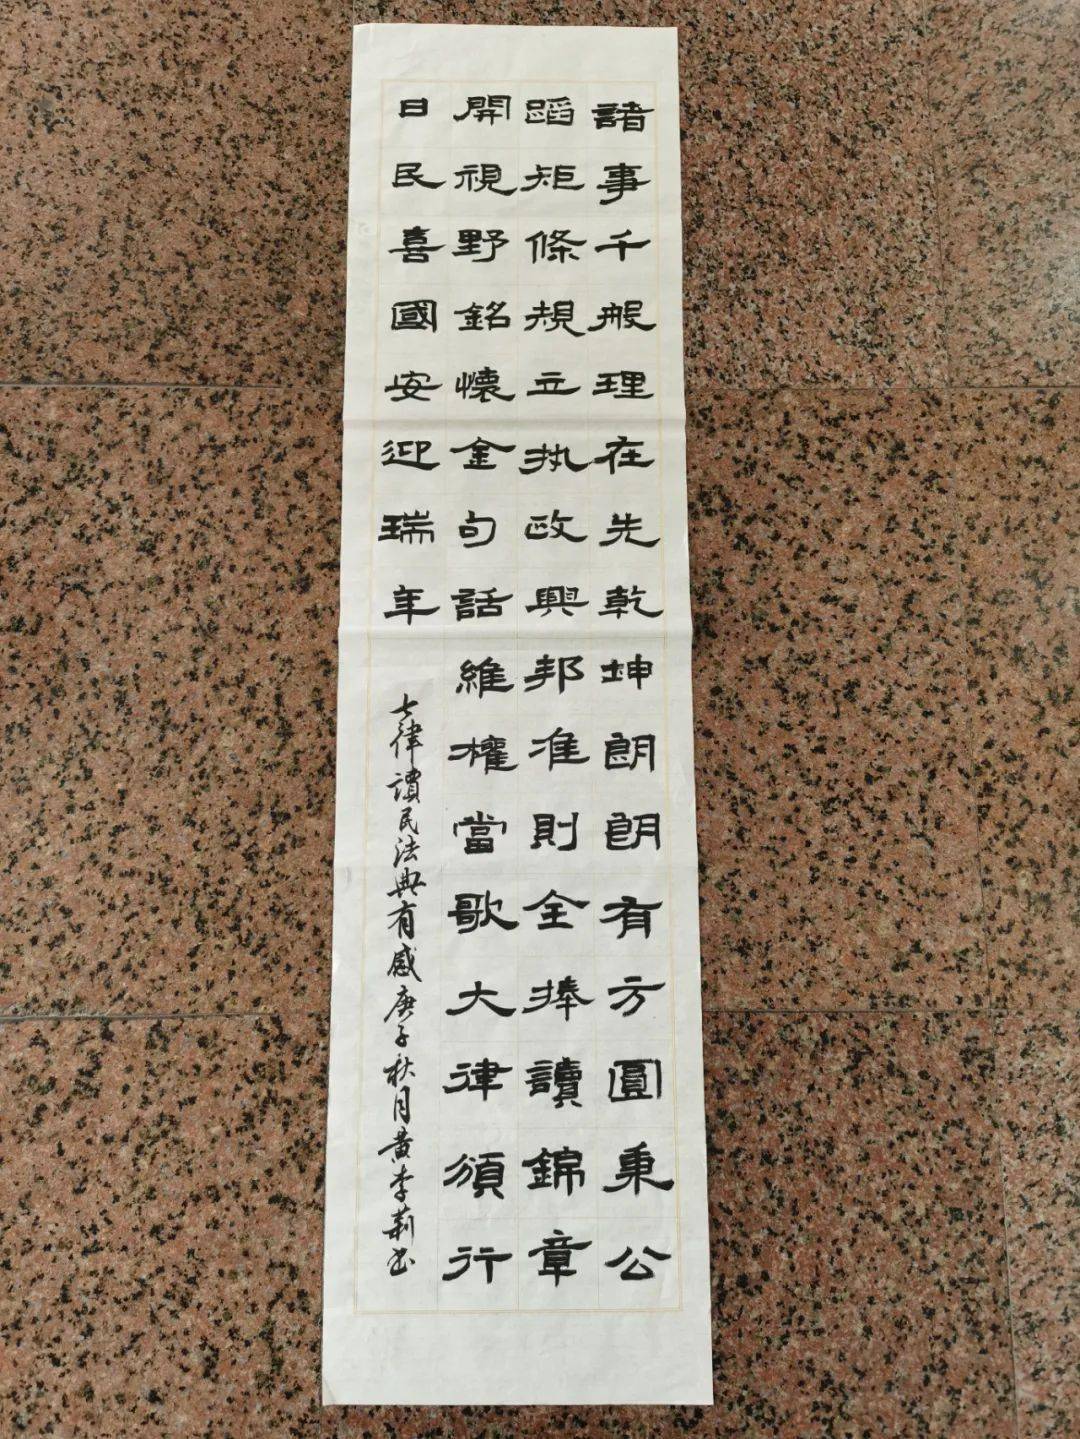 諸事千般理在先乾坤朗朗有方圓秉公
蹈矩條規立执政興邦准則全捧讀錦章
開視野銘懷金句話維權當歌大律頒行
日民喜國安迎瑞年
七律讀民法典有感庚子秋月黄李莉书